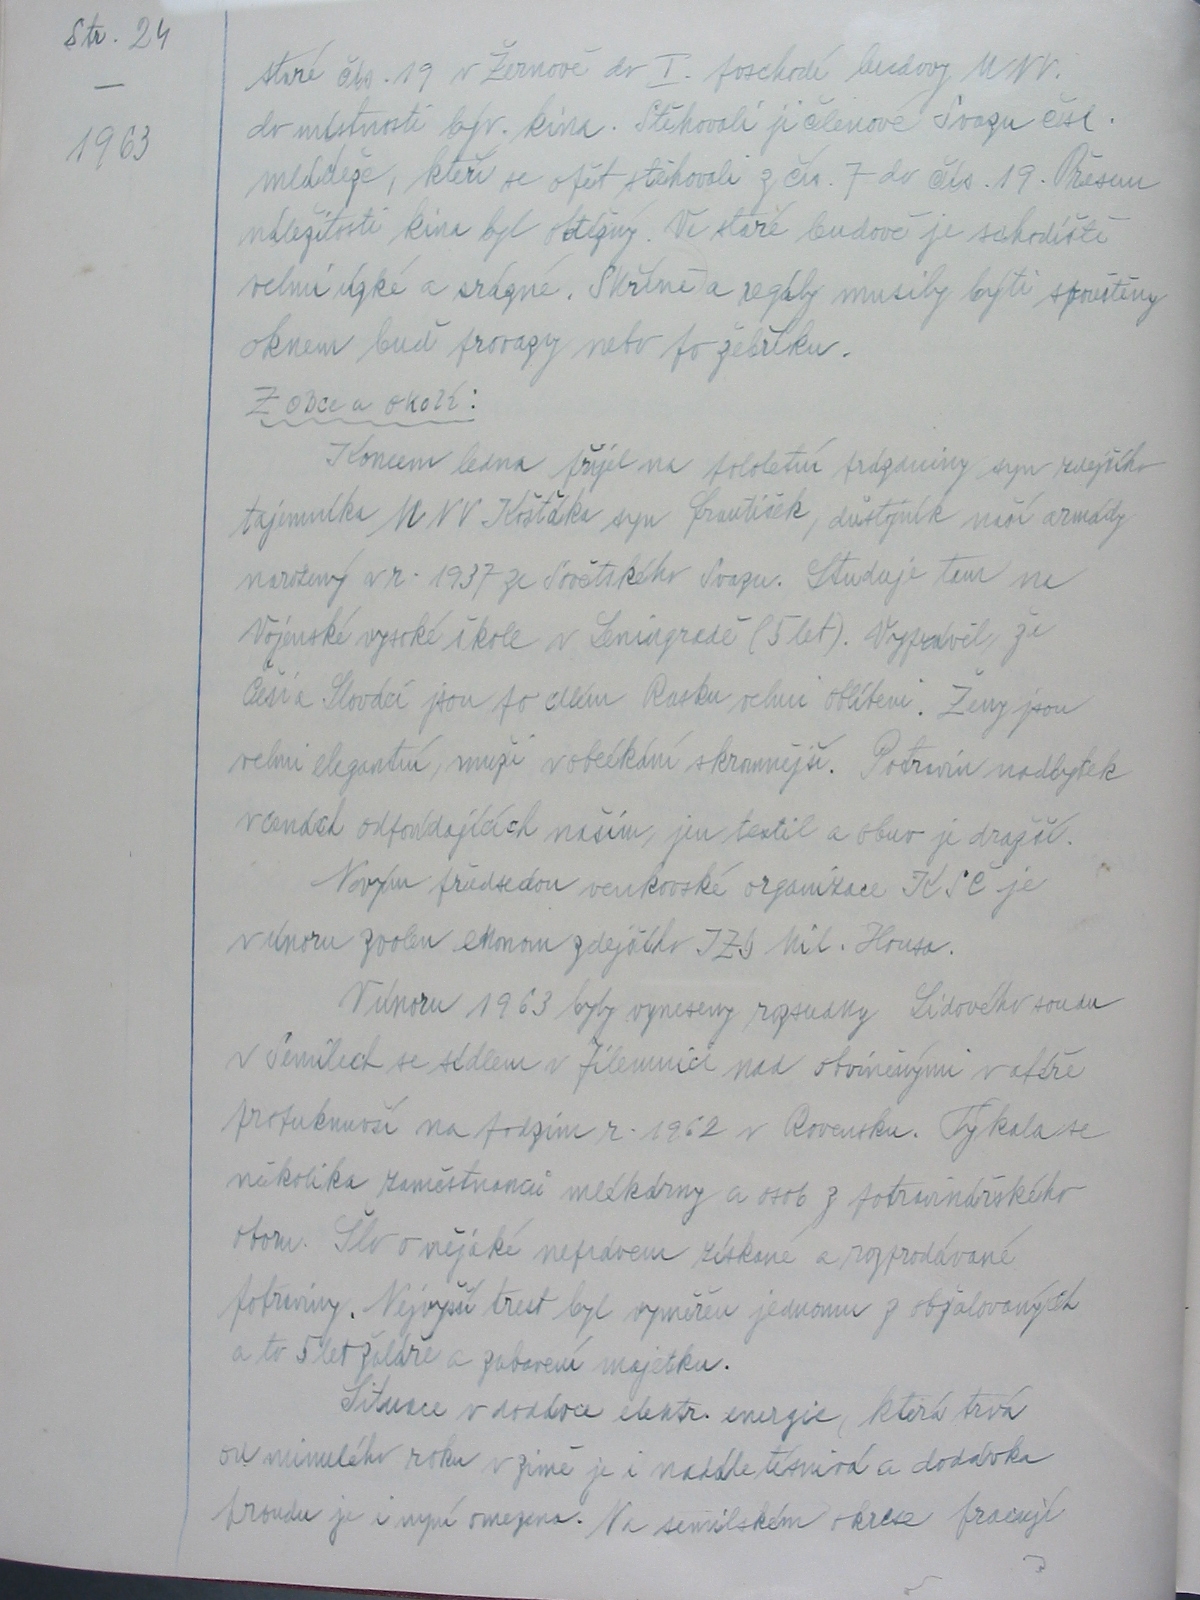 Str. 24
—
1963
staré čís. 19 v Žernově do I. poschodí budovy MNV.
do místností býv. kina. Stěhovali ji členové Svazu čsl.
mládeže, kteří se opět stěhovali z čís. 7 do čís. 19. Přesun
náležitostí kina byl obtížný. Ve staré budově je schodiště
velmi úzké a srázné. Skříně a regály musily býti spouštěny
oknem buď provazy nebo po žebříku.
Z obce a okolí:
Koncem ledna přijel na pololetní prázdniny syn zdejšího
tajemníka MNV Košťáka syn František, důstojník naší armády
narozený v r. 1937 ze Sovětského Svazu. Studuje tam na
Vojenské vysoké škole v Leningradě (5 let). Vyprávěl, že
Češi a Slováci jsou po celém Rusku velmi oblíbeni. Ženy jsou
velmi elegantní, muži v oblékání skromnější. Potravin nadbytek
v cenách odpovídajících našim, jen textil a obuv je dražší.
Novým předsedou venkovské organizace KSČ je
v únoru zvolen ekonom zdejšího JZD Mil. Housa.
V únoru 1963 byly vyneseny rozsudky Lidového soudu
v Semilech se sídlem v Jilemnici nad obviněnými v aféře
propuknuvší na podzim r. 1962 v Rovensku. Týkala se
několika zaměstnanců mlékárny a osob z potravinářského
oboru. Šlo o nějaké neprávem získané a rozprodávané
potraviny. Nejvyšší trest byl vyměřen jednomu z obžalovaných
a to 5 let žaláře a zabavení majetku.
Situace v dodávce elektr. energie, která trvá
od minulého roku v zimě je i nadále tísnivá a dodávka
proudu je i nyní omezena. Na semilském okrese pracují